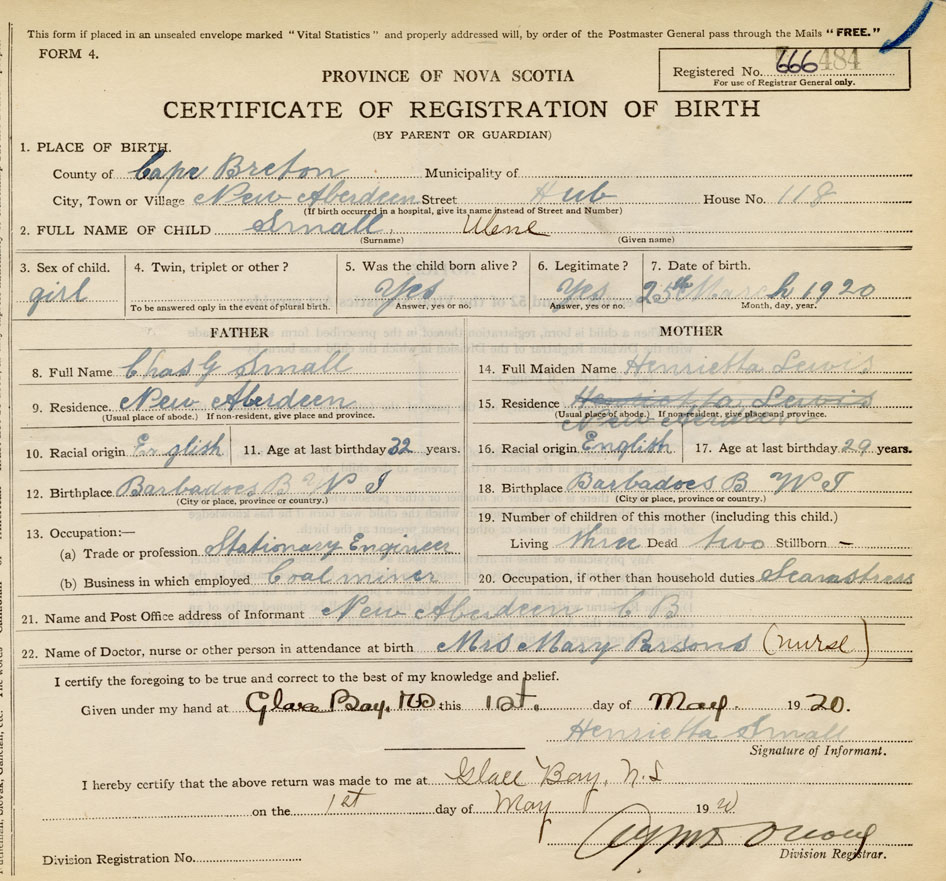 This form if placed in an unsealed envelope marked "Vital Statistics" and properly addressed will, by order of the Postmaster General pass through the Mails "FREE."
FORM 4.
Registered No. 666484
For use of Registrar General only.
PROVINCE OF NOVA SCOTIA
CERTIFICATE OF REGISTRATION OF BIRTH
(BY PARENT OR GUARDIAN)
1. PLACE OF BIRTH.
County of Cape Breton Municipality of
City, Town or Village New Aberdeen Street Hub House No. 118
(If birth occurred in a hospital, give its name instead of Street and Number)
2. FULL NAME OF CHILD Small
(Surname) (Given name)
3. Sex of child. 4. Twin, triplet or other? 5. Was the child born alive? 6. Legitimate? 7. Date of birth.
girl Yes Yes 25th March 1920
To be answered only in the event of plural birth. Answer, yes or no. Answer, yes or no. Month, day, year.
FATHER
8. Full Name Chas G Small
9. Residence New Aberdeen
(Usual place of abode.) If non-resident, give place and province.
10. Racial origin English 11. Age at last birthday 32 years.
12. Birthplace Barbadoes B W I
(City or place, province or country.)
13. Occupation:—
(a) Trade or profession Stationary Engineer
(b) Business in which employed Coal miner
MOTHER
14. Full Maiden Name Henrietta Lewis
15. Residence Henrietta Lewis
(Usual place of abode.) If non-resident, give place and province.
New Aberdeen
16. Racial origin English 17. Age at last birthday 29 years.
18. Birthplace Barbadoes B W I
(City or place, province or country.)
19. Number of children of this mother (including this child.)
Living three Dead two Stillborn –
20. Occupation, if other than household duties Seamstress
21. Name and Post Office address of Informant New Aberdeen C B
22. Name of Doctor, nurse or other person in attendance at birth Mrs Mary Parsons (nurse)
I certify the foregoing to be true and correct to the best of my knowledge and belief.
Given under my hand at Glace Bay, this 1st. day of May. 1920.
Henrietta Small
Signature of Informant.
I hereby certify that the above return was made to me at Glace Bay, N.S
on the 1st day of May 1920
Division Registrar.
Division Registration No.